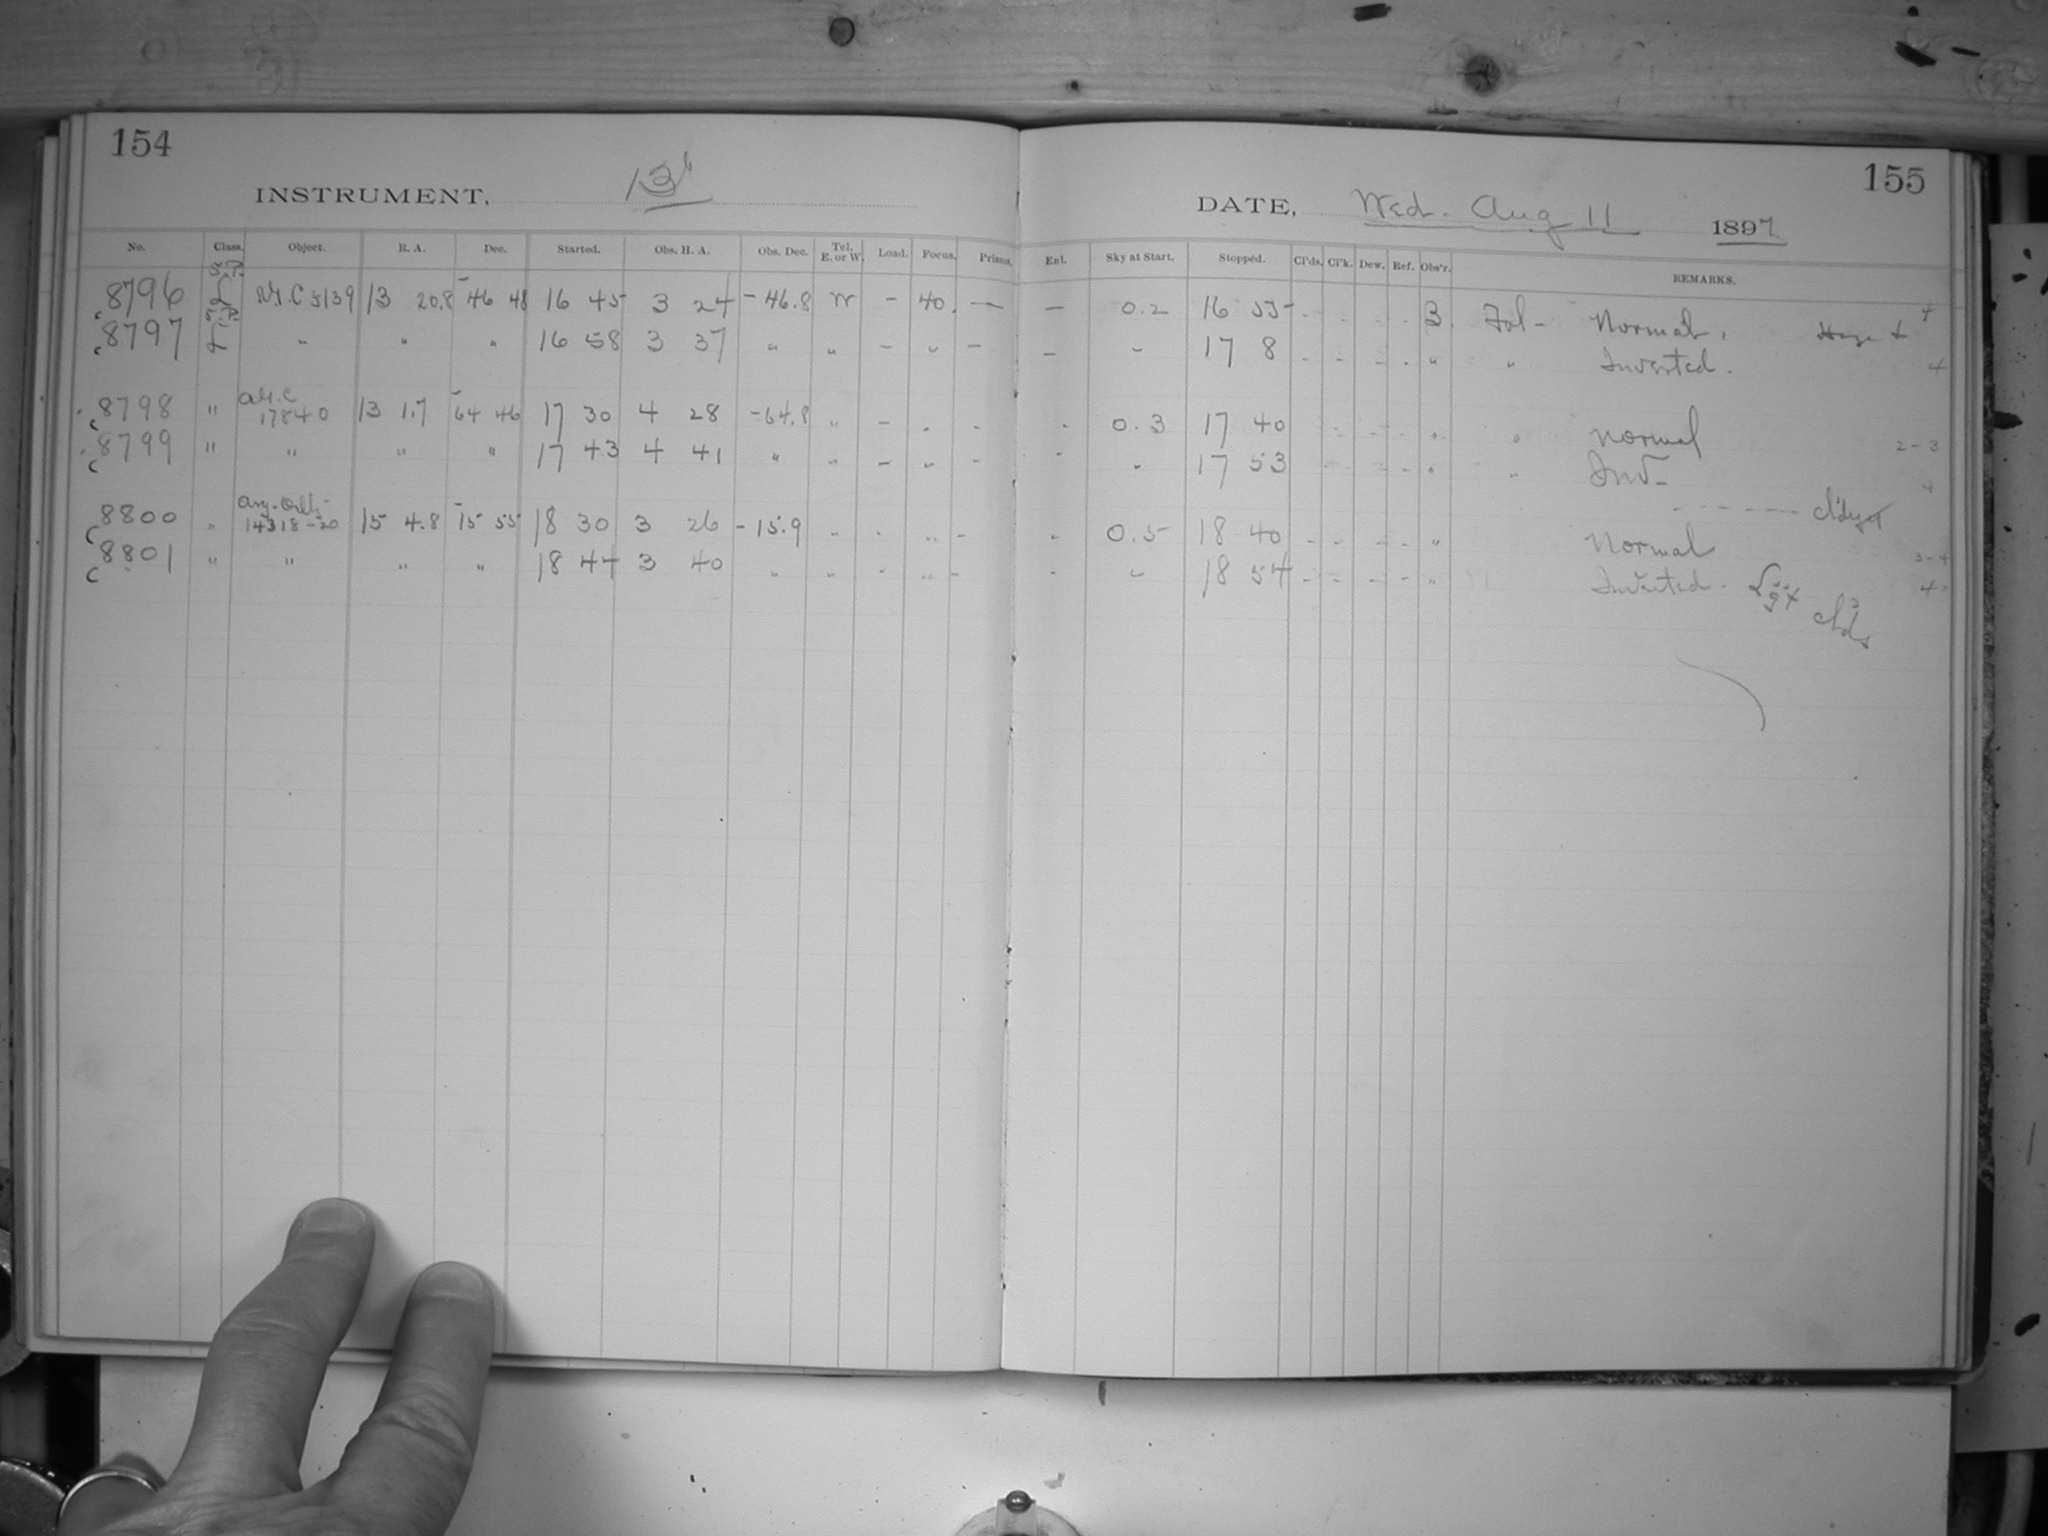 154
INSTRUMENT, 13"
No. Class. Object. R. A. Dec. Started. Obs. H. A. Obs. Dec. Tel. E. or W. Load. Focus. Prisms.
8796 N.G.C 5139 13 20.8 -46 48 16 45 3 24 -46.8 W - 40. -
8797 " " " 16 58 3 37 " " - " -
8798 " A.G.C. 17840 13 1.7 -64 46 17 30 4 28 -64.8 " - " -
8799 " " " " 17 43 4 41 " " - " -
8800 " Arg. Oeltz. 14318-20 15 4.8 -15 55 18 30 3 26 -15.9 " - " -
8801 " " " " 18 44 3 40 " " " " -
155
DATE, Wed. Aug 11 1897
Enl. Sky at Start. Stopped. Cl'ds. Cl'k. Dew. Ref. Obs'r. REMARKS.
- 0.2 16 55 - - - - 3 Fol- Normal. 4
- " 17 8 - - - - " " Inverted. 4
- 0.3 17 40 - - - - " " Normal 2-3
- " 17 53 - - - - " " Inv- 4
- 0.5 18 40 - - - - " Normal 3-4
- " 18 54 - - - - " Inverted. 4
clds